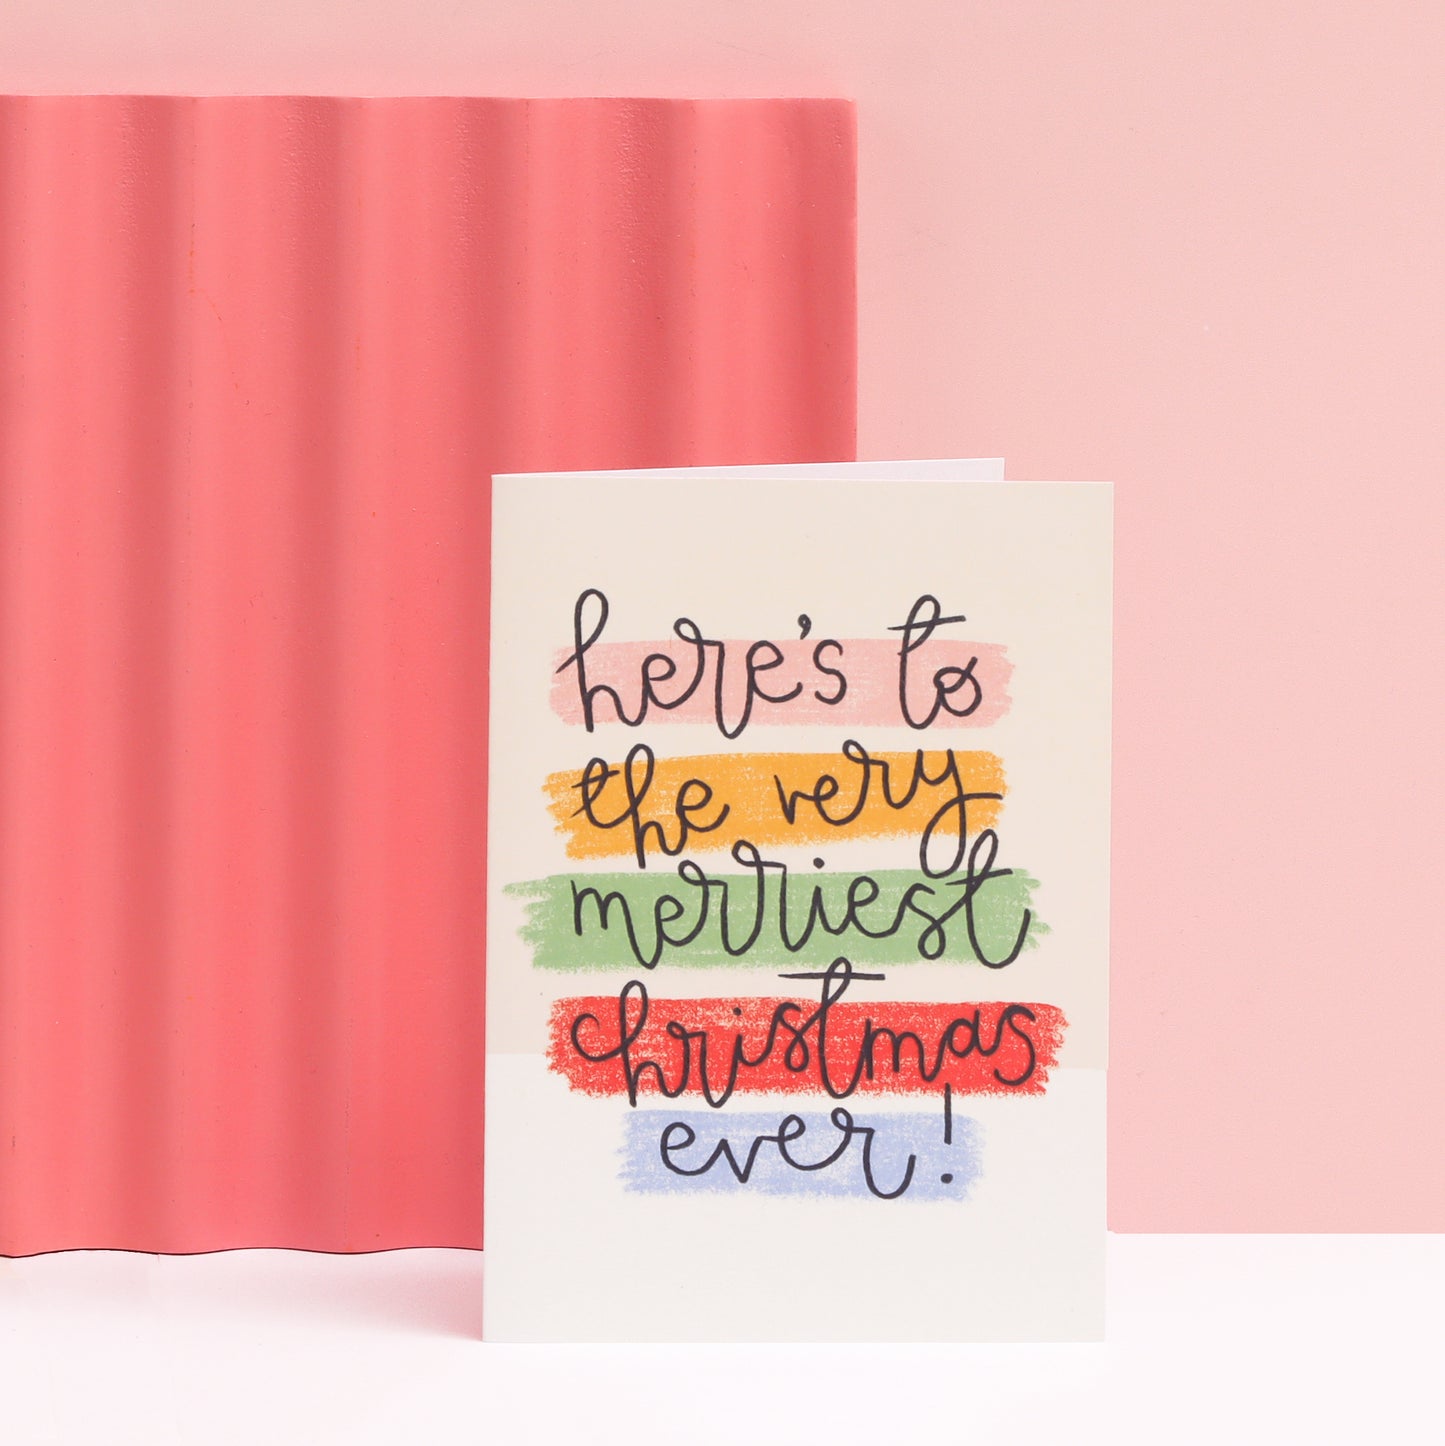 here's to
the very
merriest
christmas
ever!